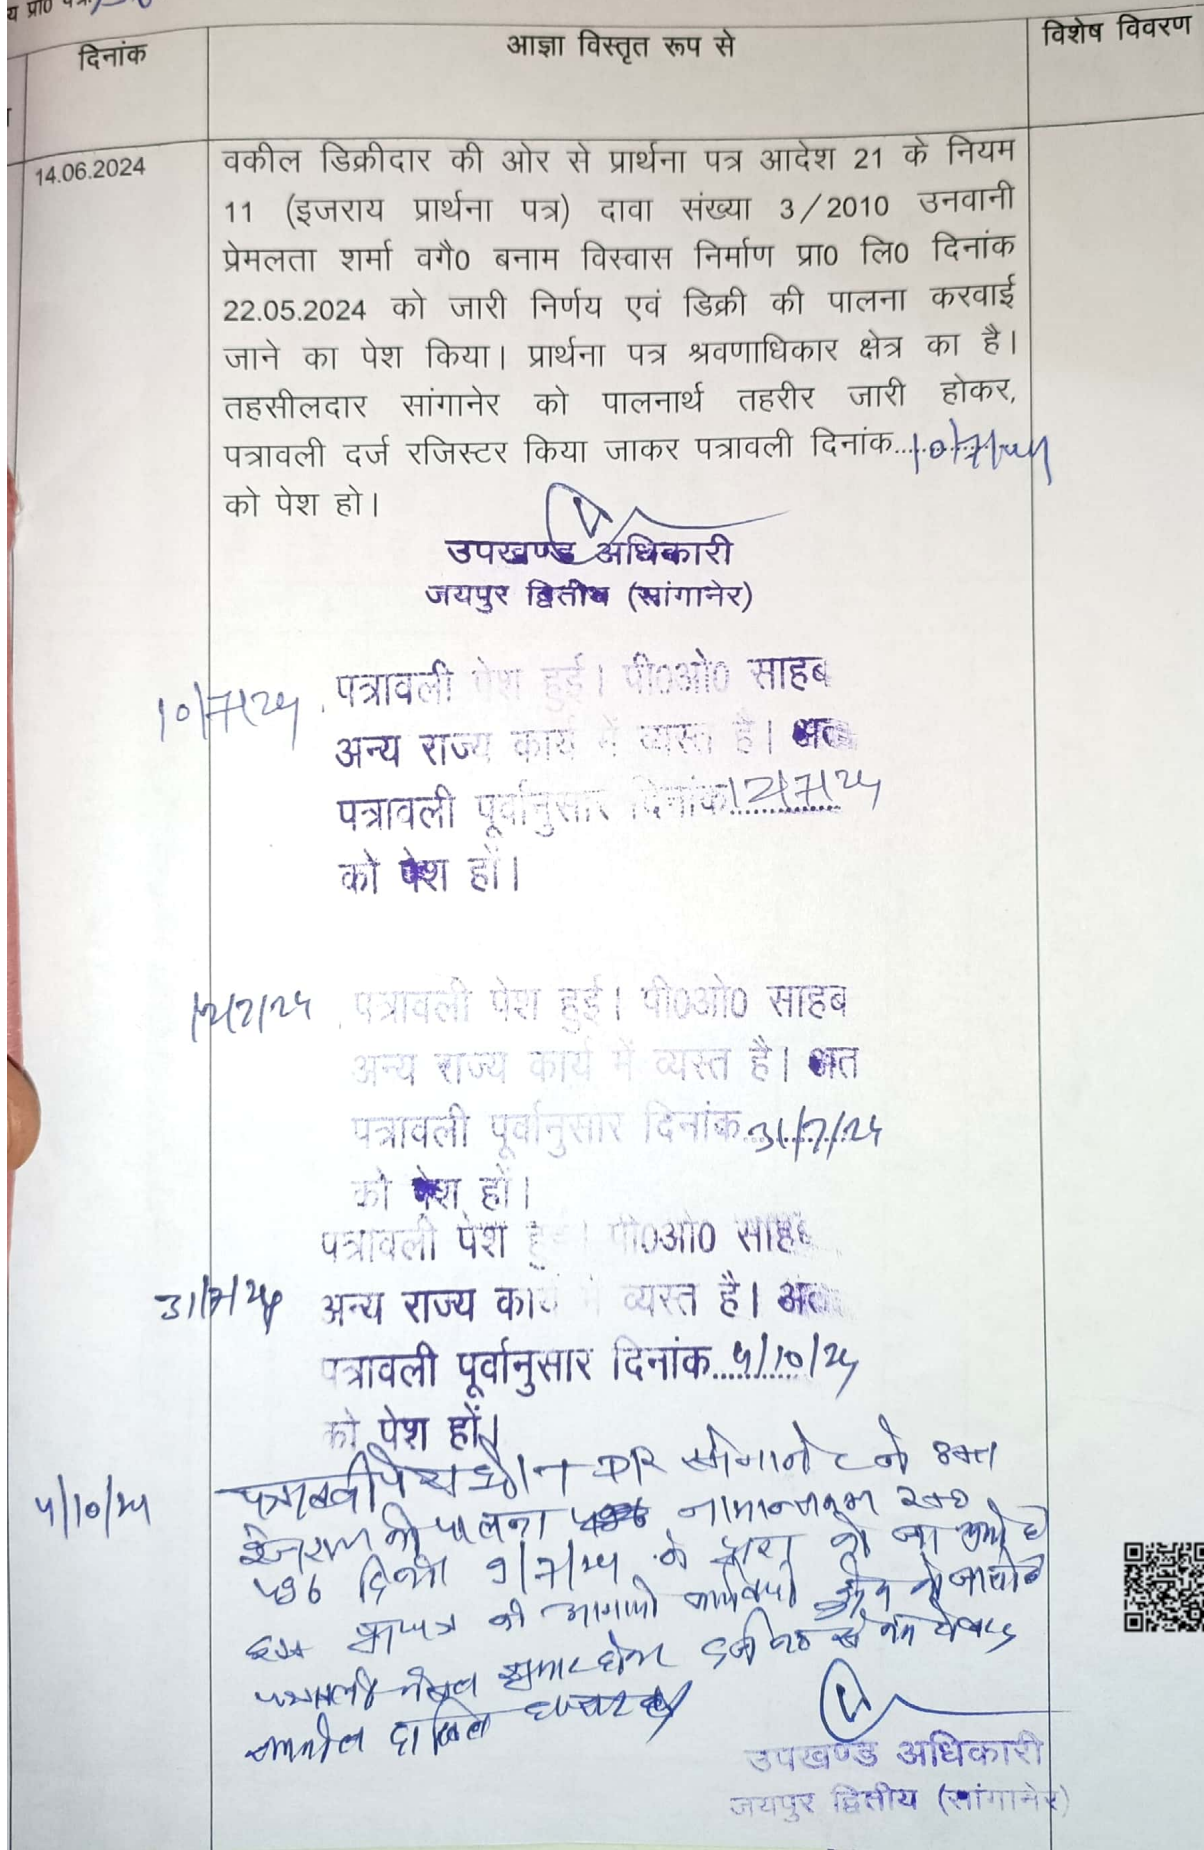 य प्रा0 पत्र
दिनांक
आज्ञा विस्तृत रूप से
विशेष विवरण
14.06.2024
वकील डिक्रीदार की ओर से प्रार्थना पत्र आदेश 21 के नियम
11 (इजराय प्रार्थना पत्र) दावा संख्या 3/2010 उनवानी
प्रेमलता शर्मा वगै0 बनाम विस्वास निर्माण प्रा0 लि0 दिनांक
22.05.2024 को जारी निर्णय एवं डिक्री की पालना करवाई
जाने का पेश किया। प्रार्थना पत्र श्रवणाधिकार क्षेत्र का है।
तहसीलदार सांगानेर को पालनार्थ तहरीर जारी होकर,
पत्रावली दर्ज रजिस्टर किया जाकर पत्रावली दिनांक 10/7/24
को पेश हो।
उपखण्ड अधिकारी
जयपुर द्वितीय (सांगानेर)
10/7/24
पत्रावली पेश हुई। पी0ओ0 साहब
अन्य राज्य कार्य में व्यस्त है। अत
पत्रावली पूर्वानुसार दिनांक 12/7/24
को पेश हों।
12/7/24
पत्रावली पेश हुई। पी0ओ0 साहब
अन्य राज्य कार्य में व्यस्त है। अत
पत्रावली पूर्वानुसार दिनांक 31/7/24
को पेश हों।
पत्रावली पेश हुई। पी0ओ0 साहब
31/7/24
अन्य राज्य कार्य में व्यस्त है। अत
पत्रावली पूर्वानुसार दिनांक 4/10/24
को पेश हों।
4/10/24
पत्रावली पेश सांगानेर ने
की पालना नामान्तकरण
दिनांक 9/7/24 के द्वारा
की
दाखिल
उपखण्ड अधिकारी
जयपुर द्वितीय (सांगानेर)